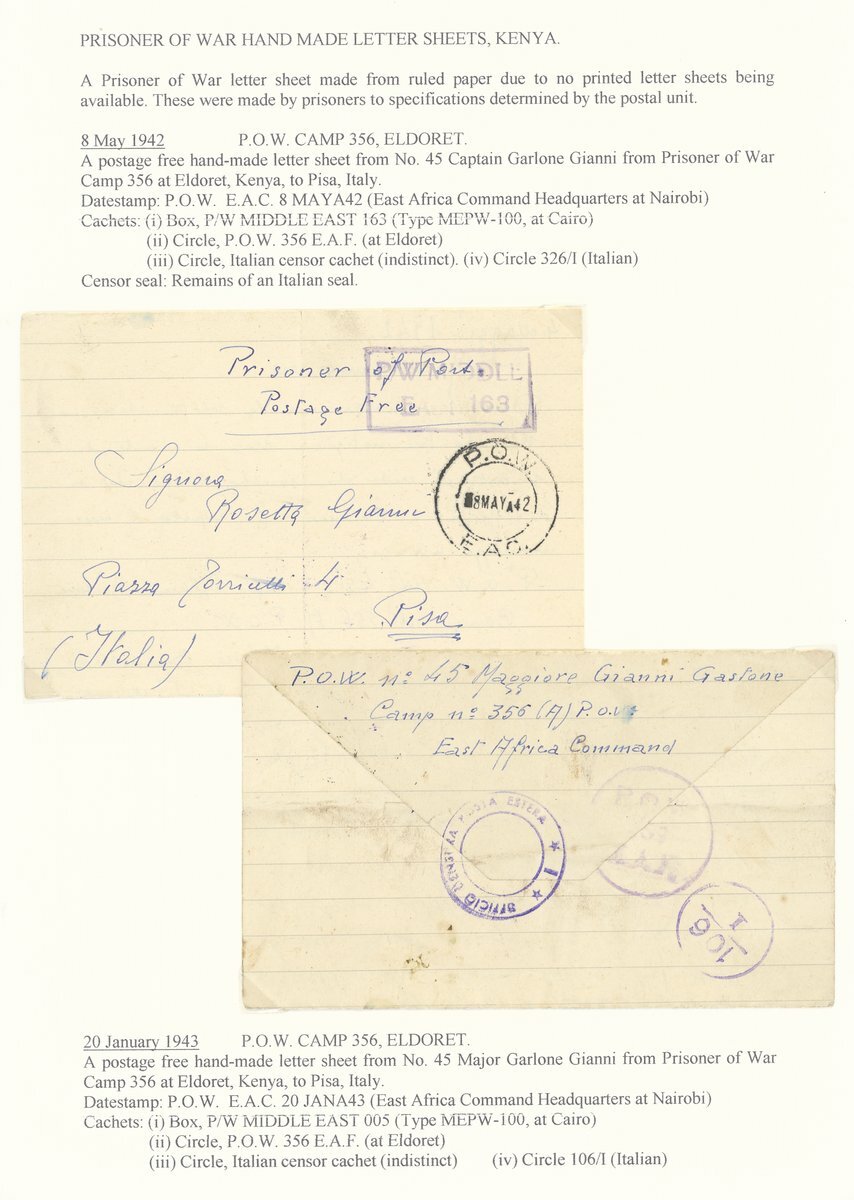 PRISONER OF WAR HAND MADE LETTER SHEETS, KENYA.
A Prisoner of War letter sheet made from ruled paper due to no printed letter sheets being
available. These were made by prisoners to specifications determined by the postal unit.
8 May 1942 P.O.W. CAMP 356, ELDORET.
A postage free hand-made letter sheet from No. 45 Captain Garlone Gianni from Prisoner of War
Camp 356 at Eldoret, Kenya, to Pisa, Italy.
Datestamp: P.O.W. E.A.C. 8 MAYA42 (East Africa Command Headquarters at Nairobi)
Cachets: (i) Box, P/W MIDDLE EAST 163 (Type MEPW-100, at Cairo)
(ii) Circle, P.O.W. 356 E.A.F. (at Eldoret)
(iii) Circle, Italian censor cachet (indistinct). (iv) Circle 326/I (Italian)
Censor seal: Remains of an Italian seal.
Prisoner of Port.
Postage Free
P/W MIDDLE
163
Signora
Rosetta Gianni
P.O.W.
8MAYA42
E.A.C.
Piazza Torricelli 4
Pisa
(Italia)
P.O.W. n° 45 Maggiore Gianni Gastone
Camp n° 356 (A) P.O.W.
East Africa Command
UFFICIO CENSURA POSTA ESTERA
I
106
I
20 January 1943 P.O.W. CAMP 356, ELDORET.
A postage free hand-made letter sheet from No. 45 Major Garlone Gianni from Prisoner of War
Camp 356 at Eldoret, Kenya, to Pisa, Italy.
Datestamp: P.O.W. E.A.C. 20 JANA43 (East Africa Command Headquarters at Nairobi)
Cachets: (i) Box, P/W MIDDLE EAST 005 (Type MEPW-100, at Cairo)
(ii) Circle, P.O.W. 356 E.A.F. (at Eldoret)
(iii) Circle, Italian censor cachet (indistinct) (iv) Circle 106/I (Italian)